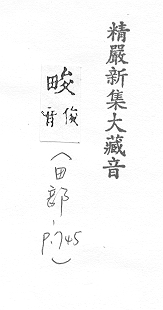 精嚴新集大藏音
畯
俊音
（田部，
p.745）